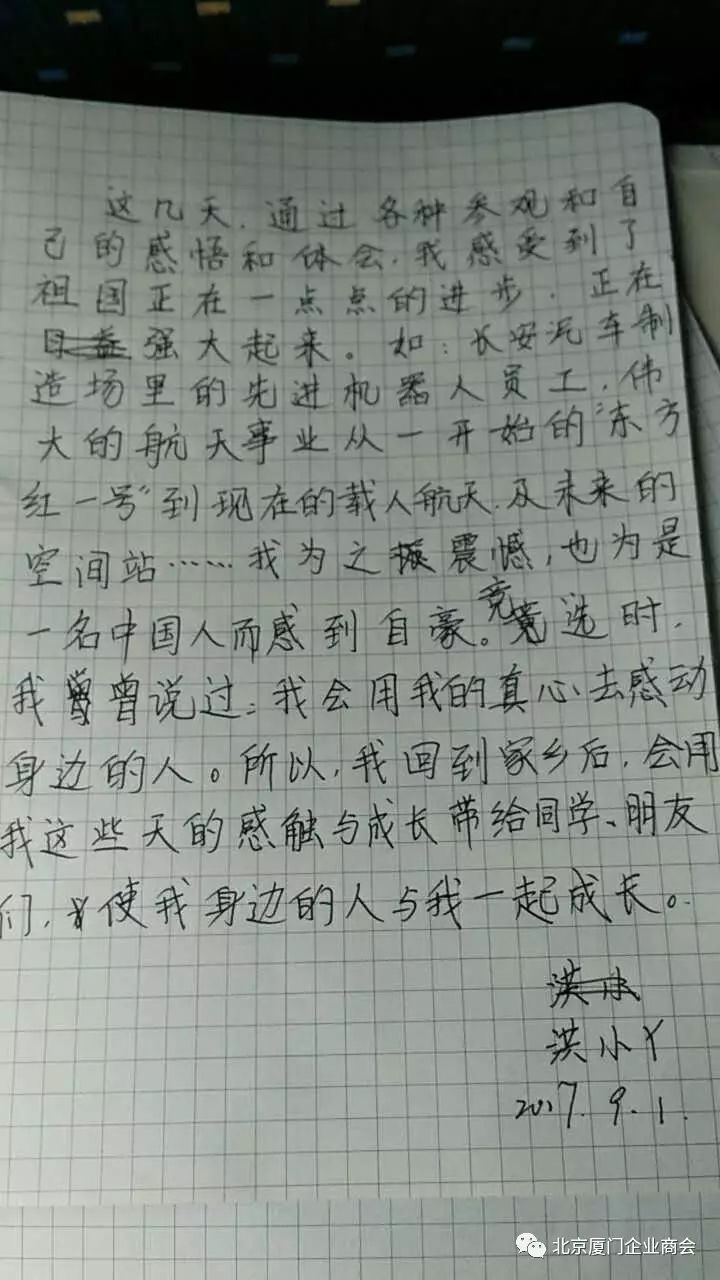 这几天，通过各种参观和自
己的感悟和体会，我感受到了
祖国正在一点点的进步，正在
日益强大起来。如：长安汽车制
造场里的先进机器人员工，伟
大的航天事业从一开始的“东方
红一号”到现在的载人航天，及未来的
空间站……我为之振震憾，也为是
一名中国人而感到自豪。竞选时，
我曾曾说过：我会用我的真心去感动
身边的人。所以，我回到家乡后，会用
我这些天的感触与成长带给同学、朋友
们，使我身边的人与我一起成长。
洪小
洪小丫
2017.9.1.
北京厦门企业商会